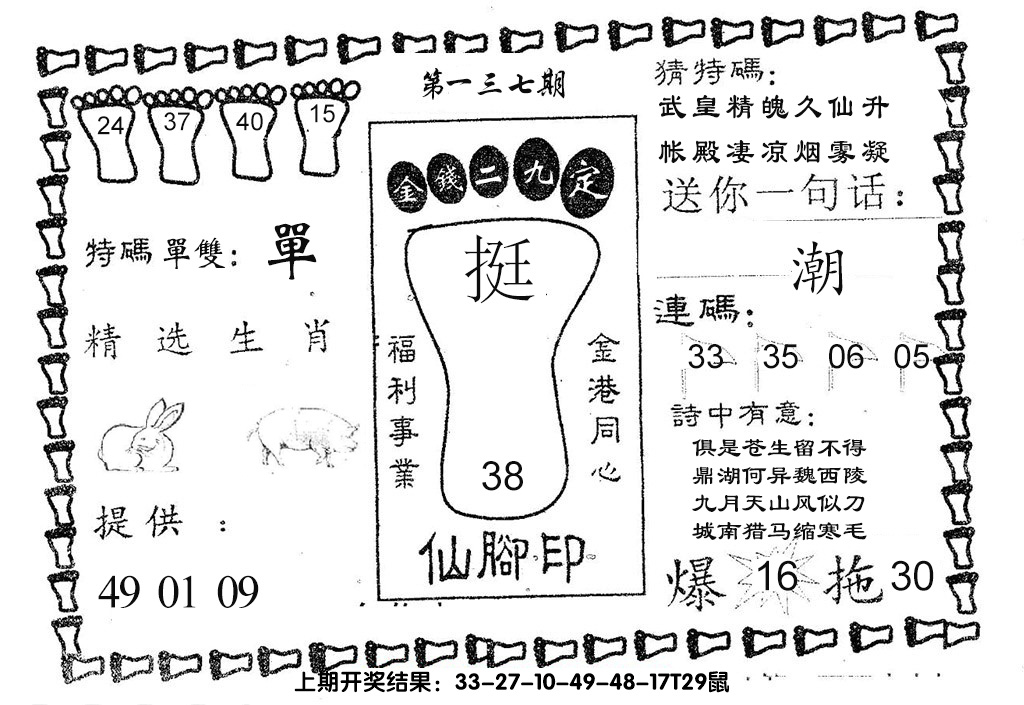 第一三七期
24 37 40 15
特碼單雙：單
精选生肖
提供：
49 01 09
金錢二九定
挺
38
福利事業
金港同心
仙腳印
猜特碼：
武皇精魄久仙升
帐殿凄凉烟雾凝
送你一句话：
潮
連碼：
33 35 06 05
詩中有意：
俱是苍生留不得
鼎湖何异魏西陵
九月天山风似刀
城南猎马缩寒毛
爆 16 拖 30
上期开奖结果：33-27-10-49-48-17T29鼠